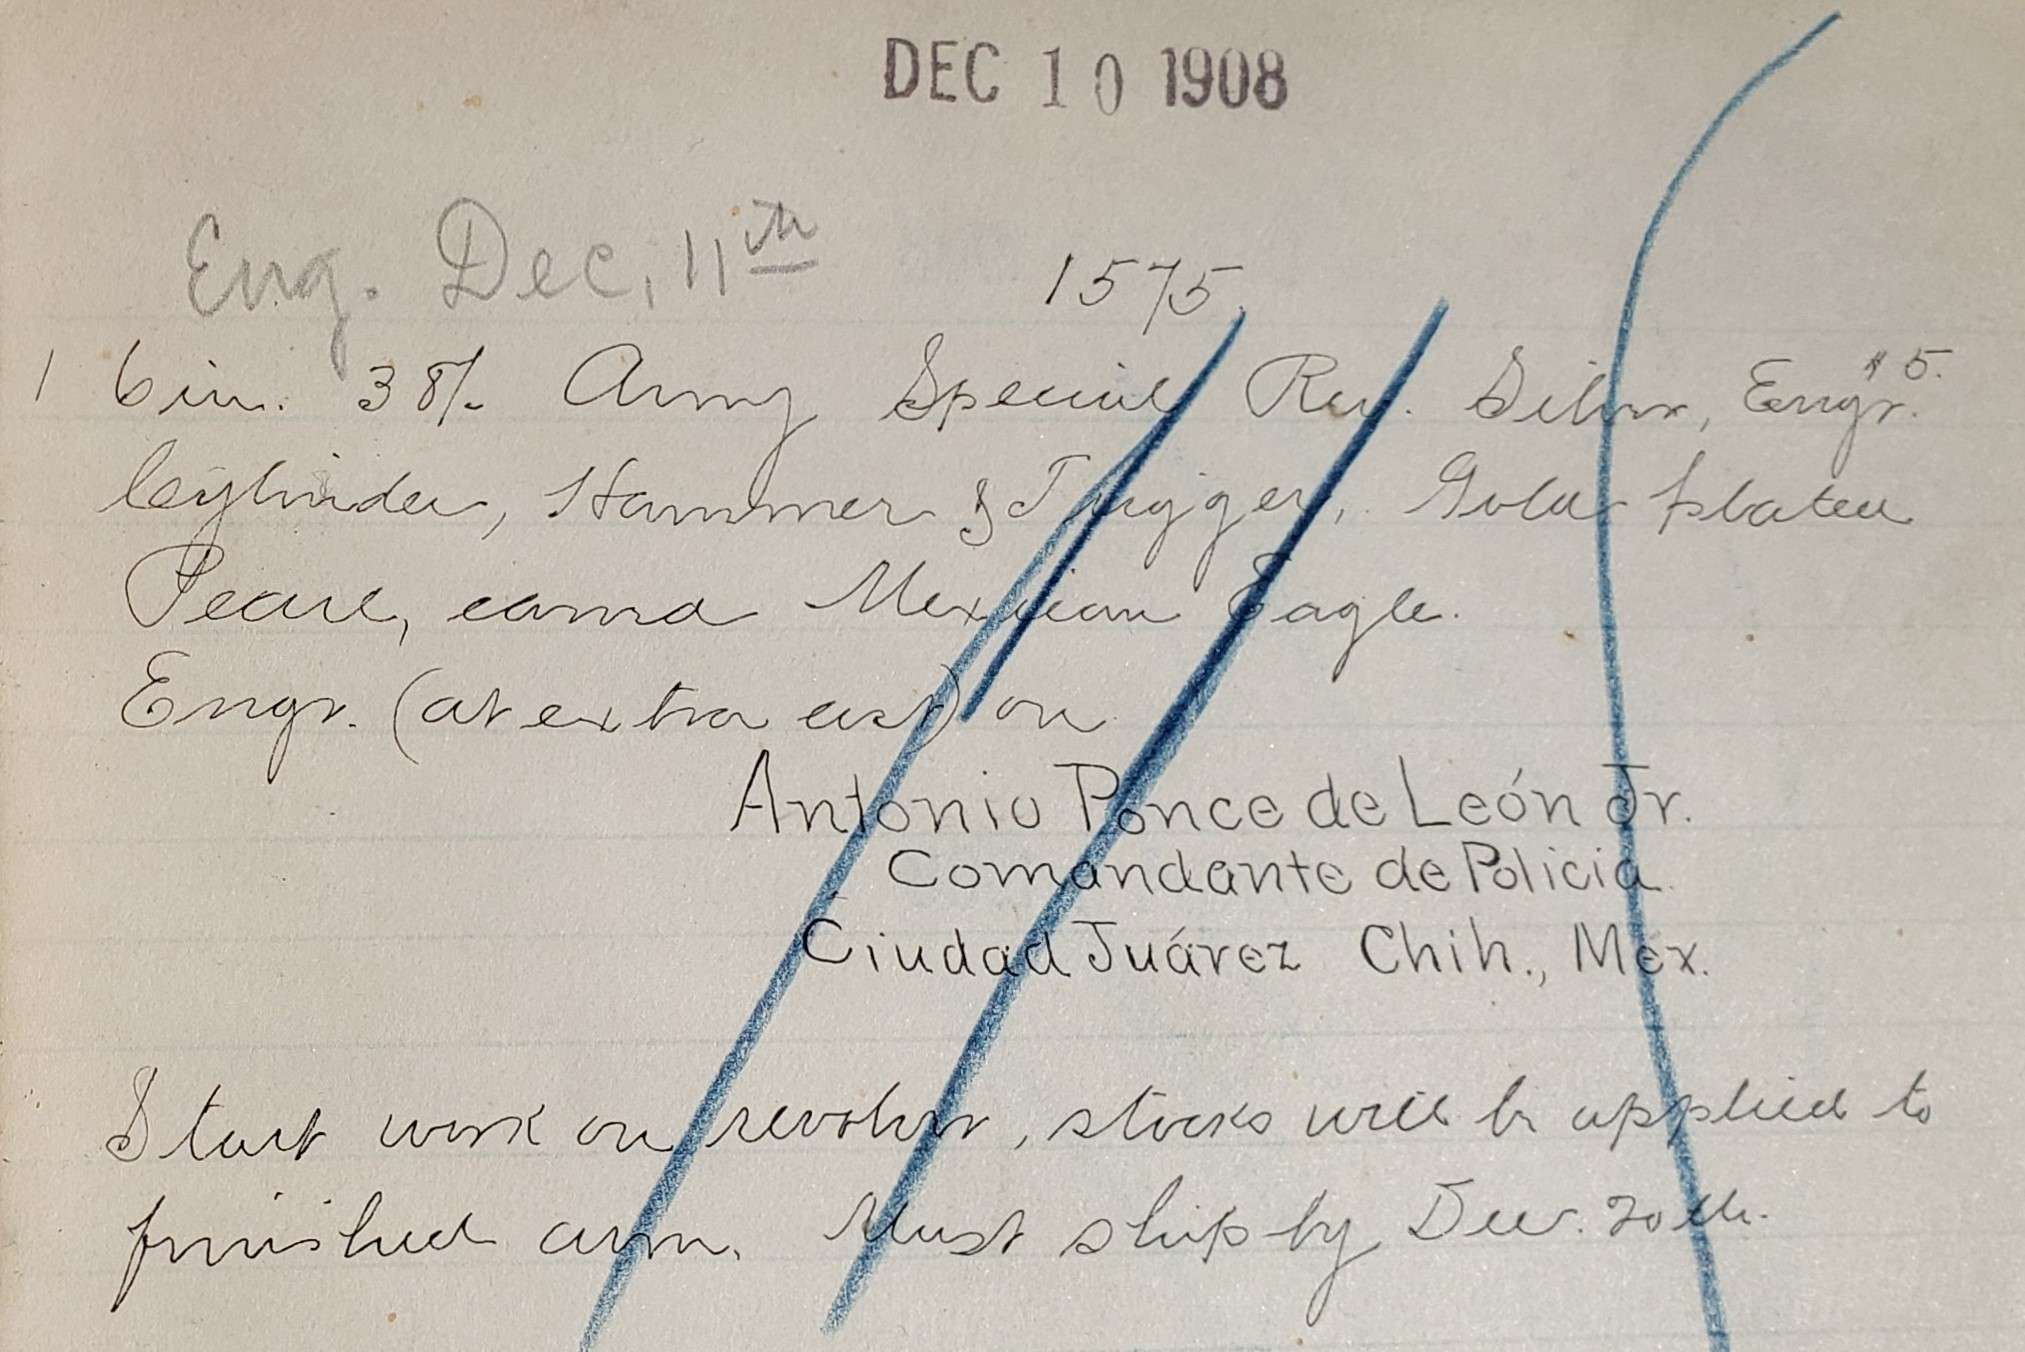 DEC 10 1908
Eng. Dec, 11th
1575.
1 6 in. 38/ Army Special Rev. Silver, Engr. $5.
Cylinder, Hammer & Trigger, Gold plated
Pearl, carved Mexican Eagle.
Engr. (at extra cost) on
Antonio Ponce de León Jr.
Comandante de Policia
Ciudad Juárez Chih., Mex.
Start work on revolver, stocks will be applied to
finished arm. Must ship by Dec. 20th.